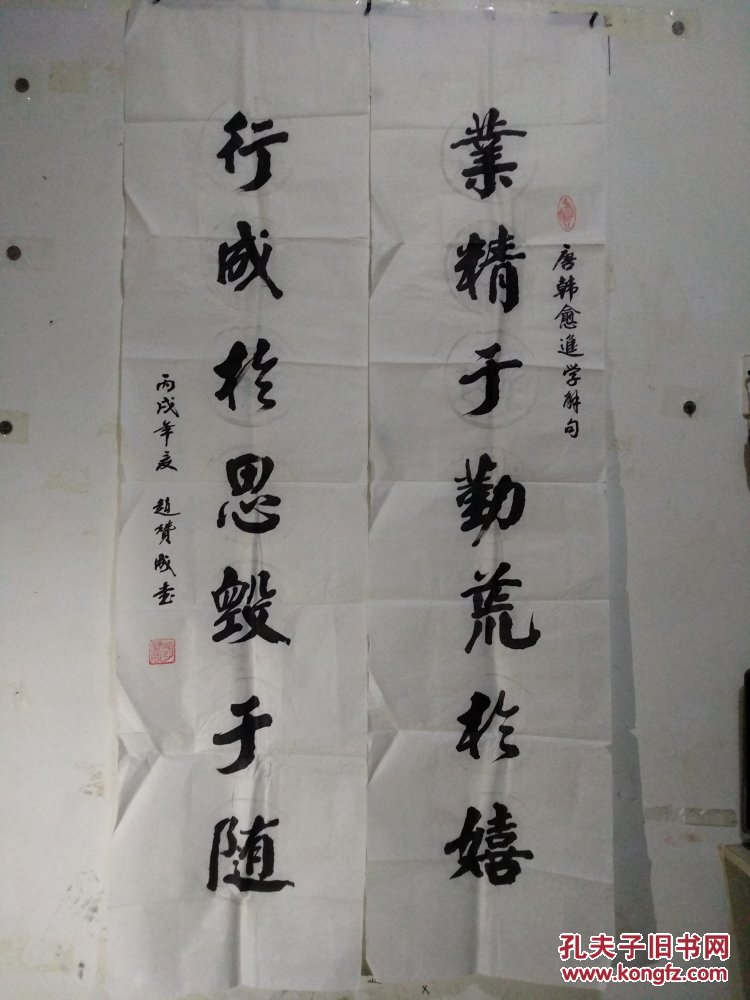 唐韩愈進学解句
業精于勤荒於嬉
行成於思毀于随
丙戌年夏 趙贊成書
孔夫子旧书网
www.kongfz.com